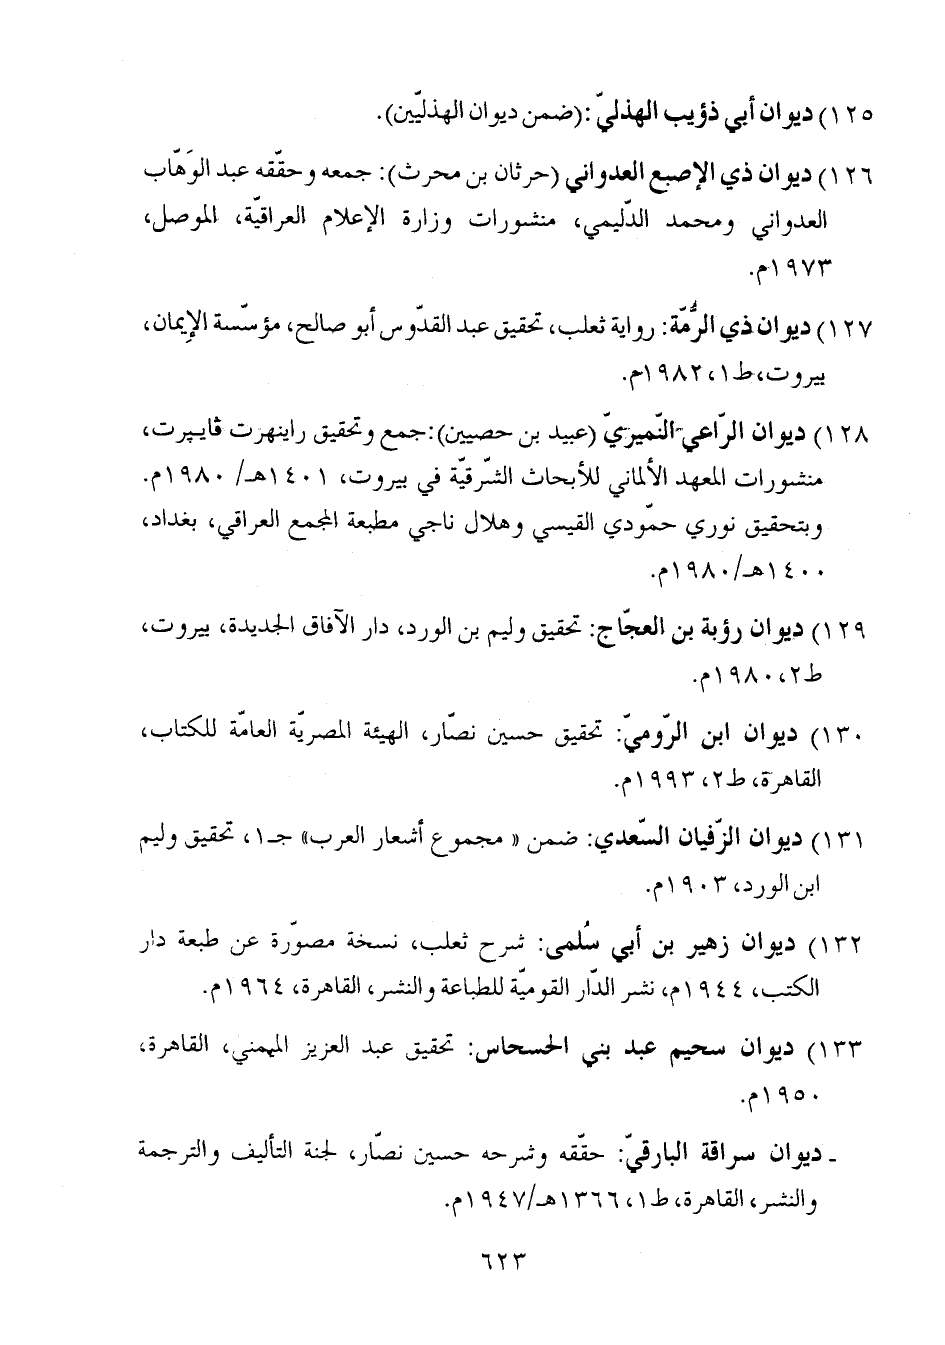 ١٢٥) ديوان أبي ذؤيب الهذليّ :(ضمن ديوان الهذليّين).
١٢٦) ديوان ذي الإصبع العدواني (حرثان بن محرث): جمعه وحقّقه عبد الوَهّاب
العدواني ومحمد الدّليمي، منشورات وزارة الإعلام العراقيّة، الموصل،
١٩٧٣م.
١٢٧) ديوان ذي الرُّمّة: رواية ثعلب، تحقيق عبد القدّوس أبو صالح، مؤسّسة الإِيمان،
بيروت،ط١، ١٩٨٢م.
١٢٨) ديوان الرّاعي النّميريّ (عبيد بن حصيين):جمع وتحقيق راينهرت ڤاييرت،
منشورات المعهد الألماني للأبحاث الشّرقيّة في بيروت، ١٤٠١هـ/ ١٩٨٠م.
وبتحقيق نوري حمّودي القيسي وهلال ناجي مطبعة المجمع العراقي، بغداد،
١٤٠٠هـ/١٩٨٠م.
١٢٩) ديوان رؤبة بن العجّاج: تحقيق وليم بن الورد، دار الآفاق الجديدة، بيروت،
ط٢، ١٩٨٠م.
١٣٠) ديوان ابن الرّوميّ: تحقيق حسين نصّار، الهيئة المصريّة العامّة للكتاب،
القاهرة، ط٢، ١٩٩٣م.
١٣١) ديوان الزّفيان السّعدي: ضمن « مجموع أشعار العرب» جـ١، تحقيق وليم
ابن الورد، ١٩٠٣م.
١٣٢) ديوان زهير بن أبي سُلمى: شرح ثعلب، نسخة مصوّرة عن طبعة دار
الكتب، ١٩٤٤م، نشر الدّار القوميّة للطباعة والنشر، القاهرة، ١٩٦٤م.
١٣٣) ديوان سحيم عبد بني الحسحاس: تحقيق عبد العزيز الميمني، القاهرة،
١٩٥٠م.
ـ ديوان سراقة البارقيّ: حقّقه وشرحه حسين نصّار، لجنة التأليف والترجمة
والنشر، القاهرة، ط١، ١٣٦٦هـ/١٩٤٧م.
٦٢٣